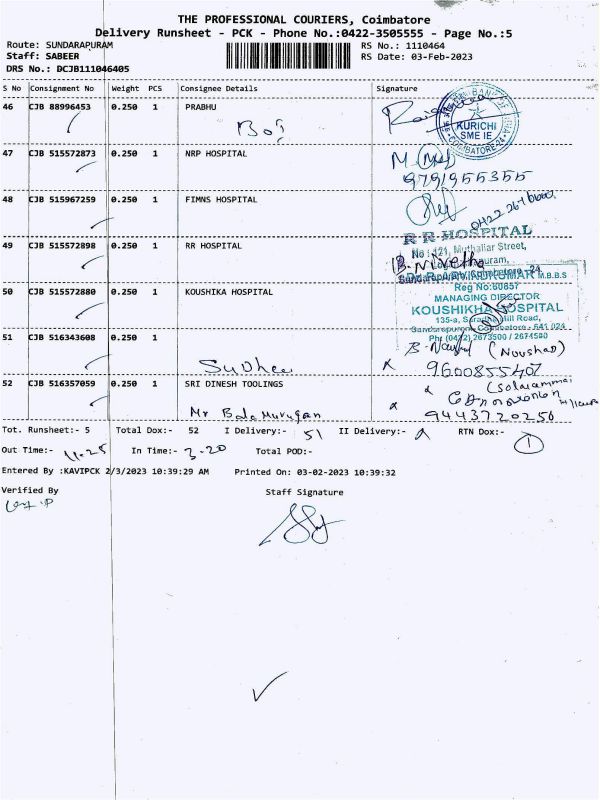 THE PROFESSIONAL COURIERS, Coimbatore
Delivery Runsheet - PCK - Phone No.:0422-3505555 - Page No.:5
Route: SUNDARAPURAM RS No.: 1110464
Staff: SABEER RS Date: 03-Feb-2023
DRS No.: DCJB111046405
S No Consignment No Weight PCS Consignee Details Signature
46 CJB 88996453 0.250 1 PRABHU
KURICHI
SME IE
COIMBATORE-24
47 CJB 515572873 0.250 1 NRP HOSPITAL
9791955355
48 CJB 515967259 0.250 1 FIMNS HOSPITAL
R R HOSPITAL
49 CJB 515572898 0.250 1 RR HOSPITAL
No : 121, Muthaliar Street,
B. Nivetha
M.B.B.S
Reg No:60857
50 CJB 515572880 0.250 1 KOUSHIKA HOSPITAL
MANAGING DIRECTOR
KOUSHIKHA HOSPITAL
135-a, Saradha Mill Road,
Sundarapuram, Coimbatore - 641 024
Ph: (0422) 2673500 / 2674500
51 CJB 516343608 0.250 1
(Noushad)
9600855407
52 CJB 516357059 0.250 1 SRI DINESH TOOLINGS
Mr Balamurugan
9443720256
Tot. Runsheet:- 5 Total Dox:- 52 I Delivery:- 51 II Delivery:- RTN Dox:- 1
Out Time:- 11.25 In Time:- 3.20 Total POD:-
Entered By :KAVIPCK 2/3/2023 10:39:29 AM Printed On: 03-02-2023 10:39:32
Verified By Staff Signature